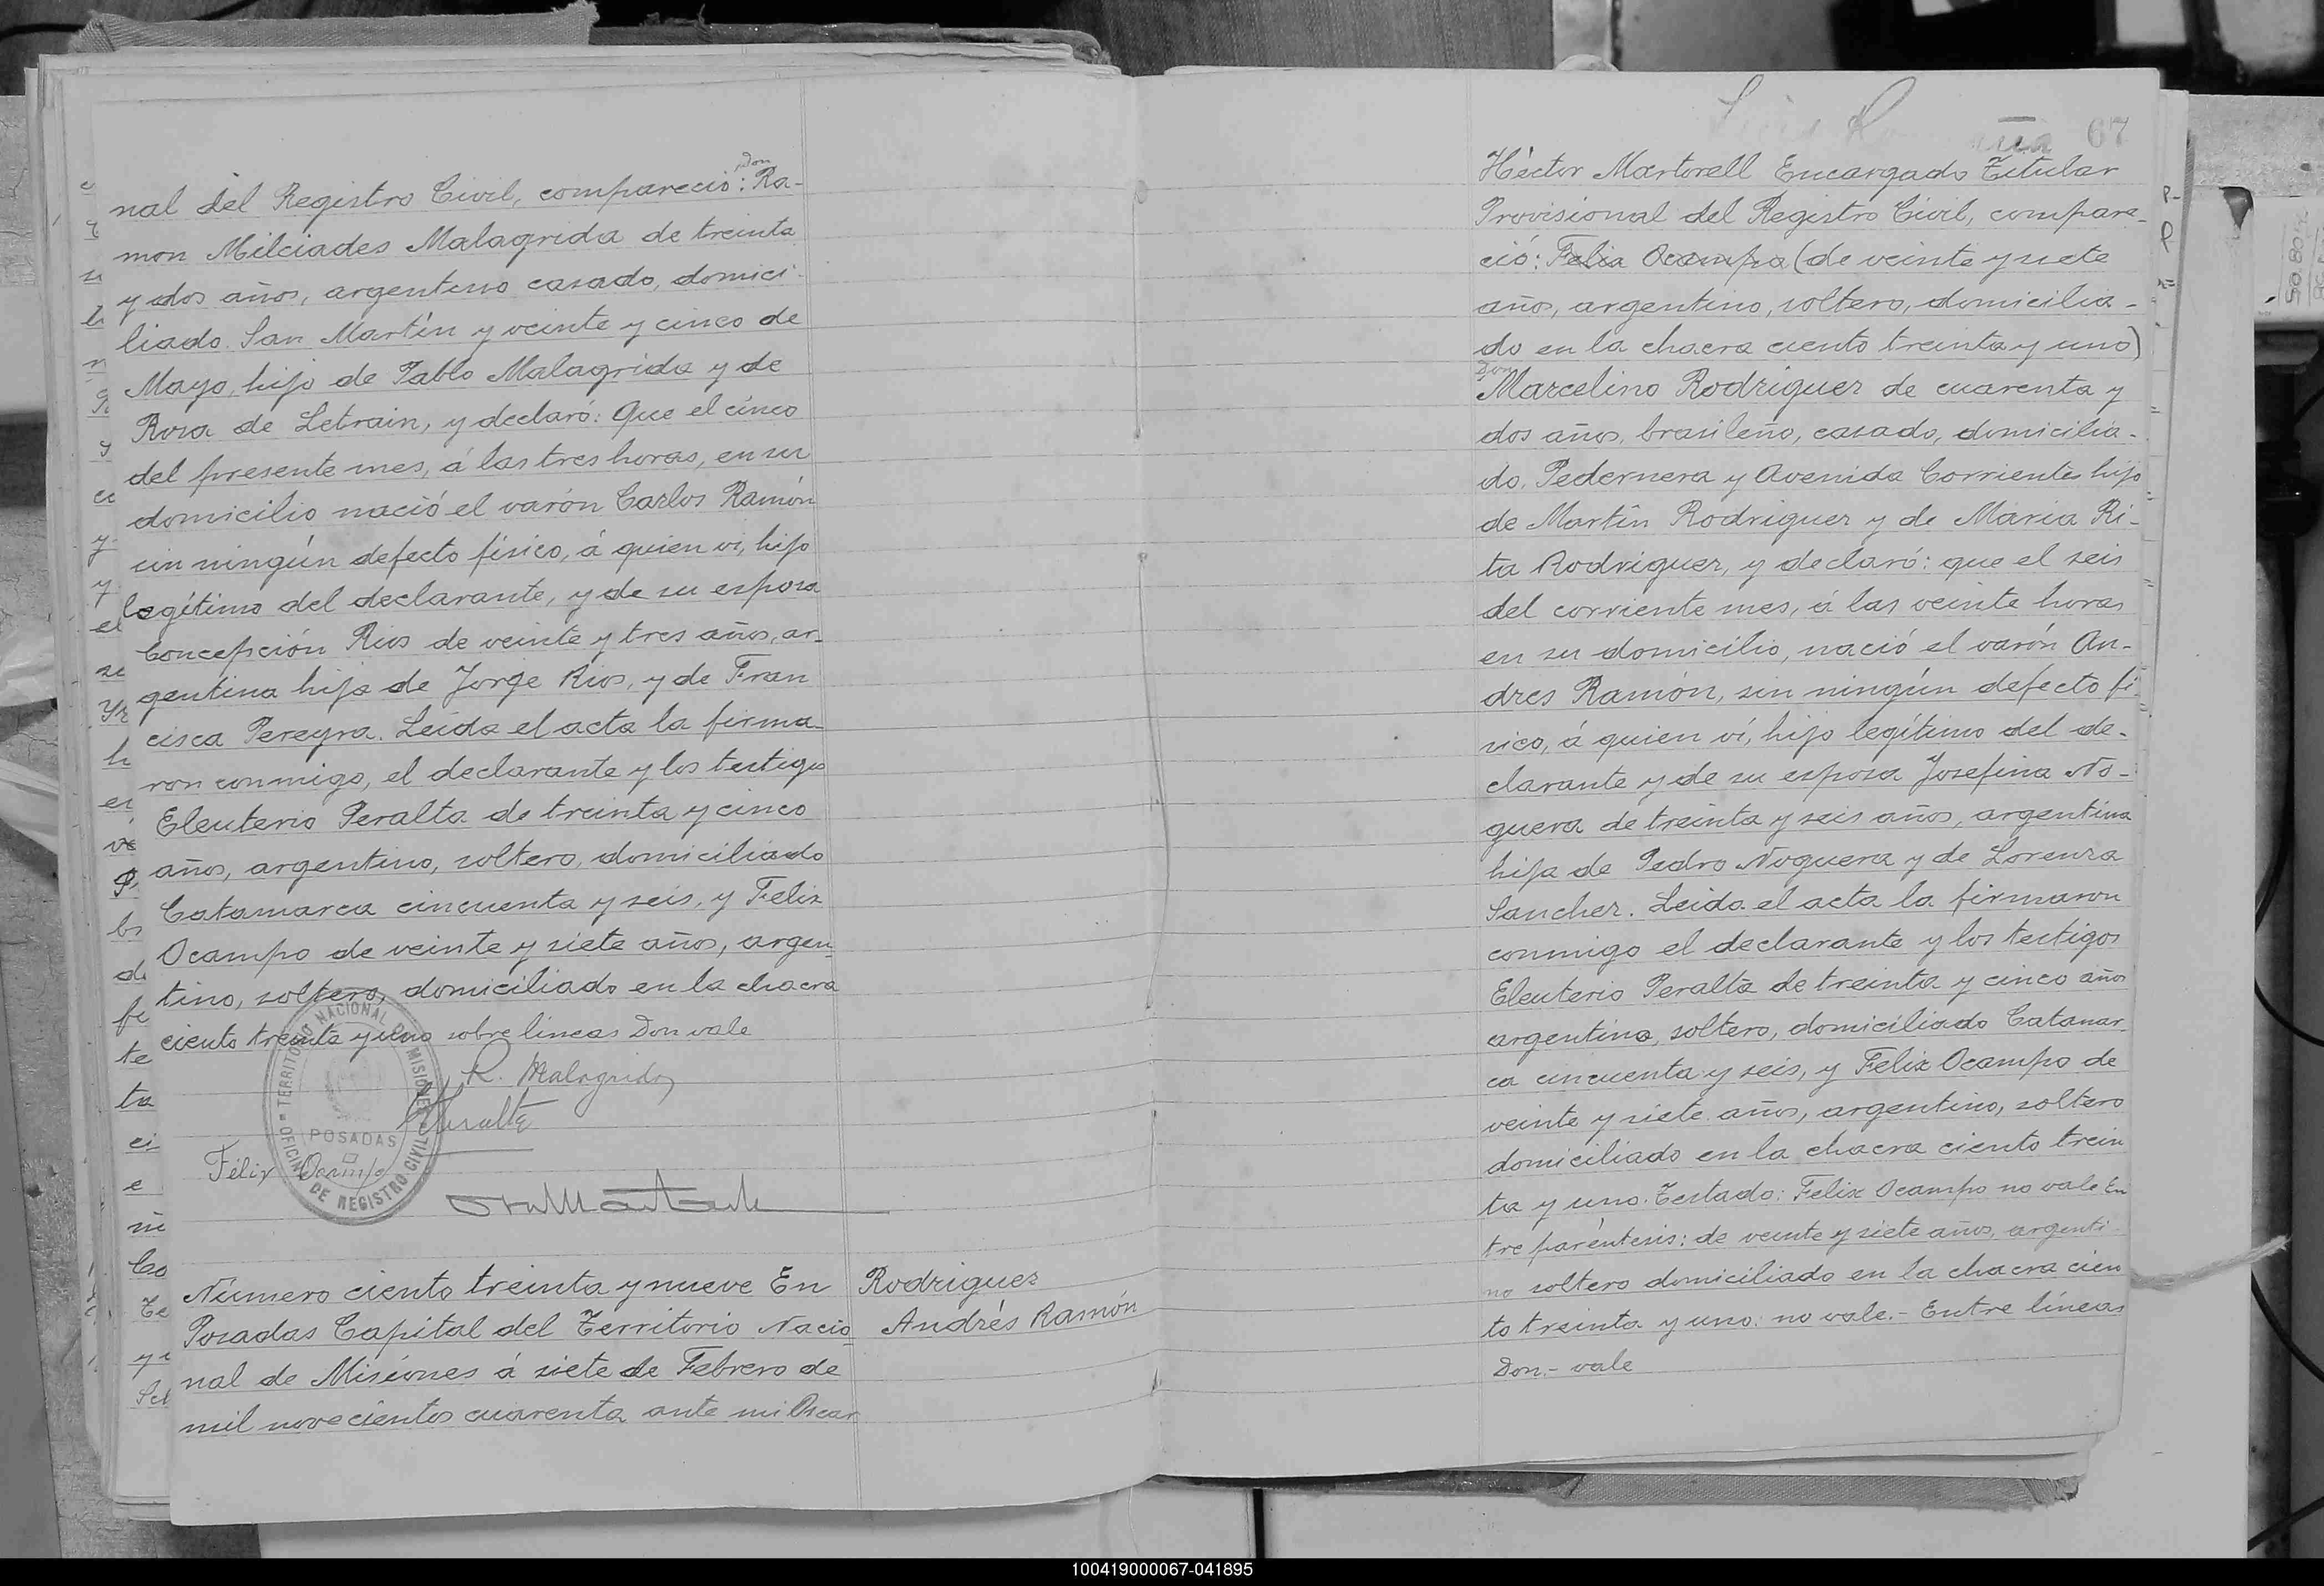 Don
nal del Registro Civil, compareció: Ra-
mon Milciades Malagrida de treinta
y dos años, argentino casado, domici-
liado San Martín y veinte y cinco de
Mayo, hijo de Pablo Malagrida y de
Rosa de Letrain, y declaró: Que el cinco
del presente mes, á las tres horas, en su
domicilio nació el varón Carlos Ramón
sin ningún defecto físico, á quien ví, hijo
legítimo del declarante, y de su esposa
Concepción Rios de veinte y tres años, ar-
gentina hija de Jorge Rios, y de Fran
cisca Pereyra. Leida el acta la firma-
ron conmigo, el declarante y los testigos
Eleuterio Peralta de treinta y cinco
años, argentino, soltero, domiciliado
Catamarca cincuenta y seis, y Felix
Ocampo de veinte y siete años, argen-
tino, soltero, domiciliado en la chacra
ciento treinta y uno sobre líneas Don vale
R. Malagrida
Peralta
Félix Ocampo
TERRITORIO NACIONAL DE MISIONES
POSADAS
OFICINA DE REGISTRO CIVIL
Número ciento treinta y nueve En
Posadas Capital del Territorio Nacio
nal de Misiones á siete de Febrero de
mil novecientos cuarenta ante mi Oscar
Rodriguez
Andrés Ramón
67
Héctor Martorell Encargado Titular
Provisional del Registro Civil, compare-
ció: Felix Ocampo (de veinte y siete
años, argentino, soltero, domicilia-
do en la chacra ciento treinta y uno)
Don
Marcelino Rodriguez de cuarenta y
dos años, brasileño, casado, domicilia-
do, Pedernera y Avenida Corrientes hijo
de Martín Rodriguez y de Maria Ri-
ta Rodriguez, y declaró: que el seis
del corriente mes, á las veinte horas
en su domicilio, nació el varón An-
dres Ramón, sin ningún defecto fí-
sico, á quien ví, hijo legítimo del de-
clarante y de su esposa Josefina No-
guera de treinta y seis años, argentina
hija de Pedro Noguera y de Lorenza
Sanchez. Leida el acta la firmaron
conmigo el declarante y los testigos
Eleuterio Peralta de treinta y cinco años
argentino, soltero, domiciliado Catamar-
ca cincuenta y seis, y Felix Ocampo de
veinte y siete años, argentino, soltero
domiciliado en la chacra ciento trein
ta y uno. Testado: Felix Ocampo no vale En
tre paréntesis: de veinte y siete años, argenti
no soltero domiciliado en la chacra cien
to treinta y uno: no vale.- Entre líneas
Don.- vale
100419000067-041895